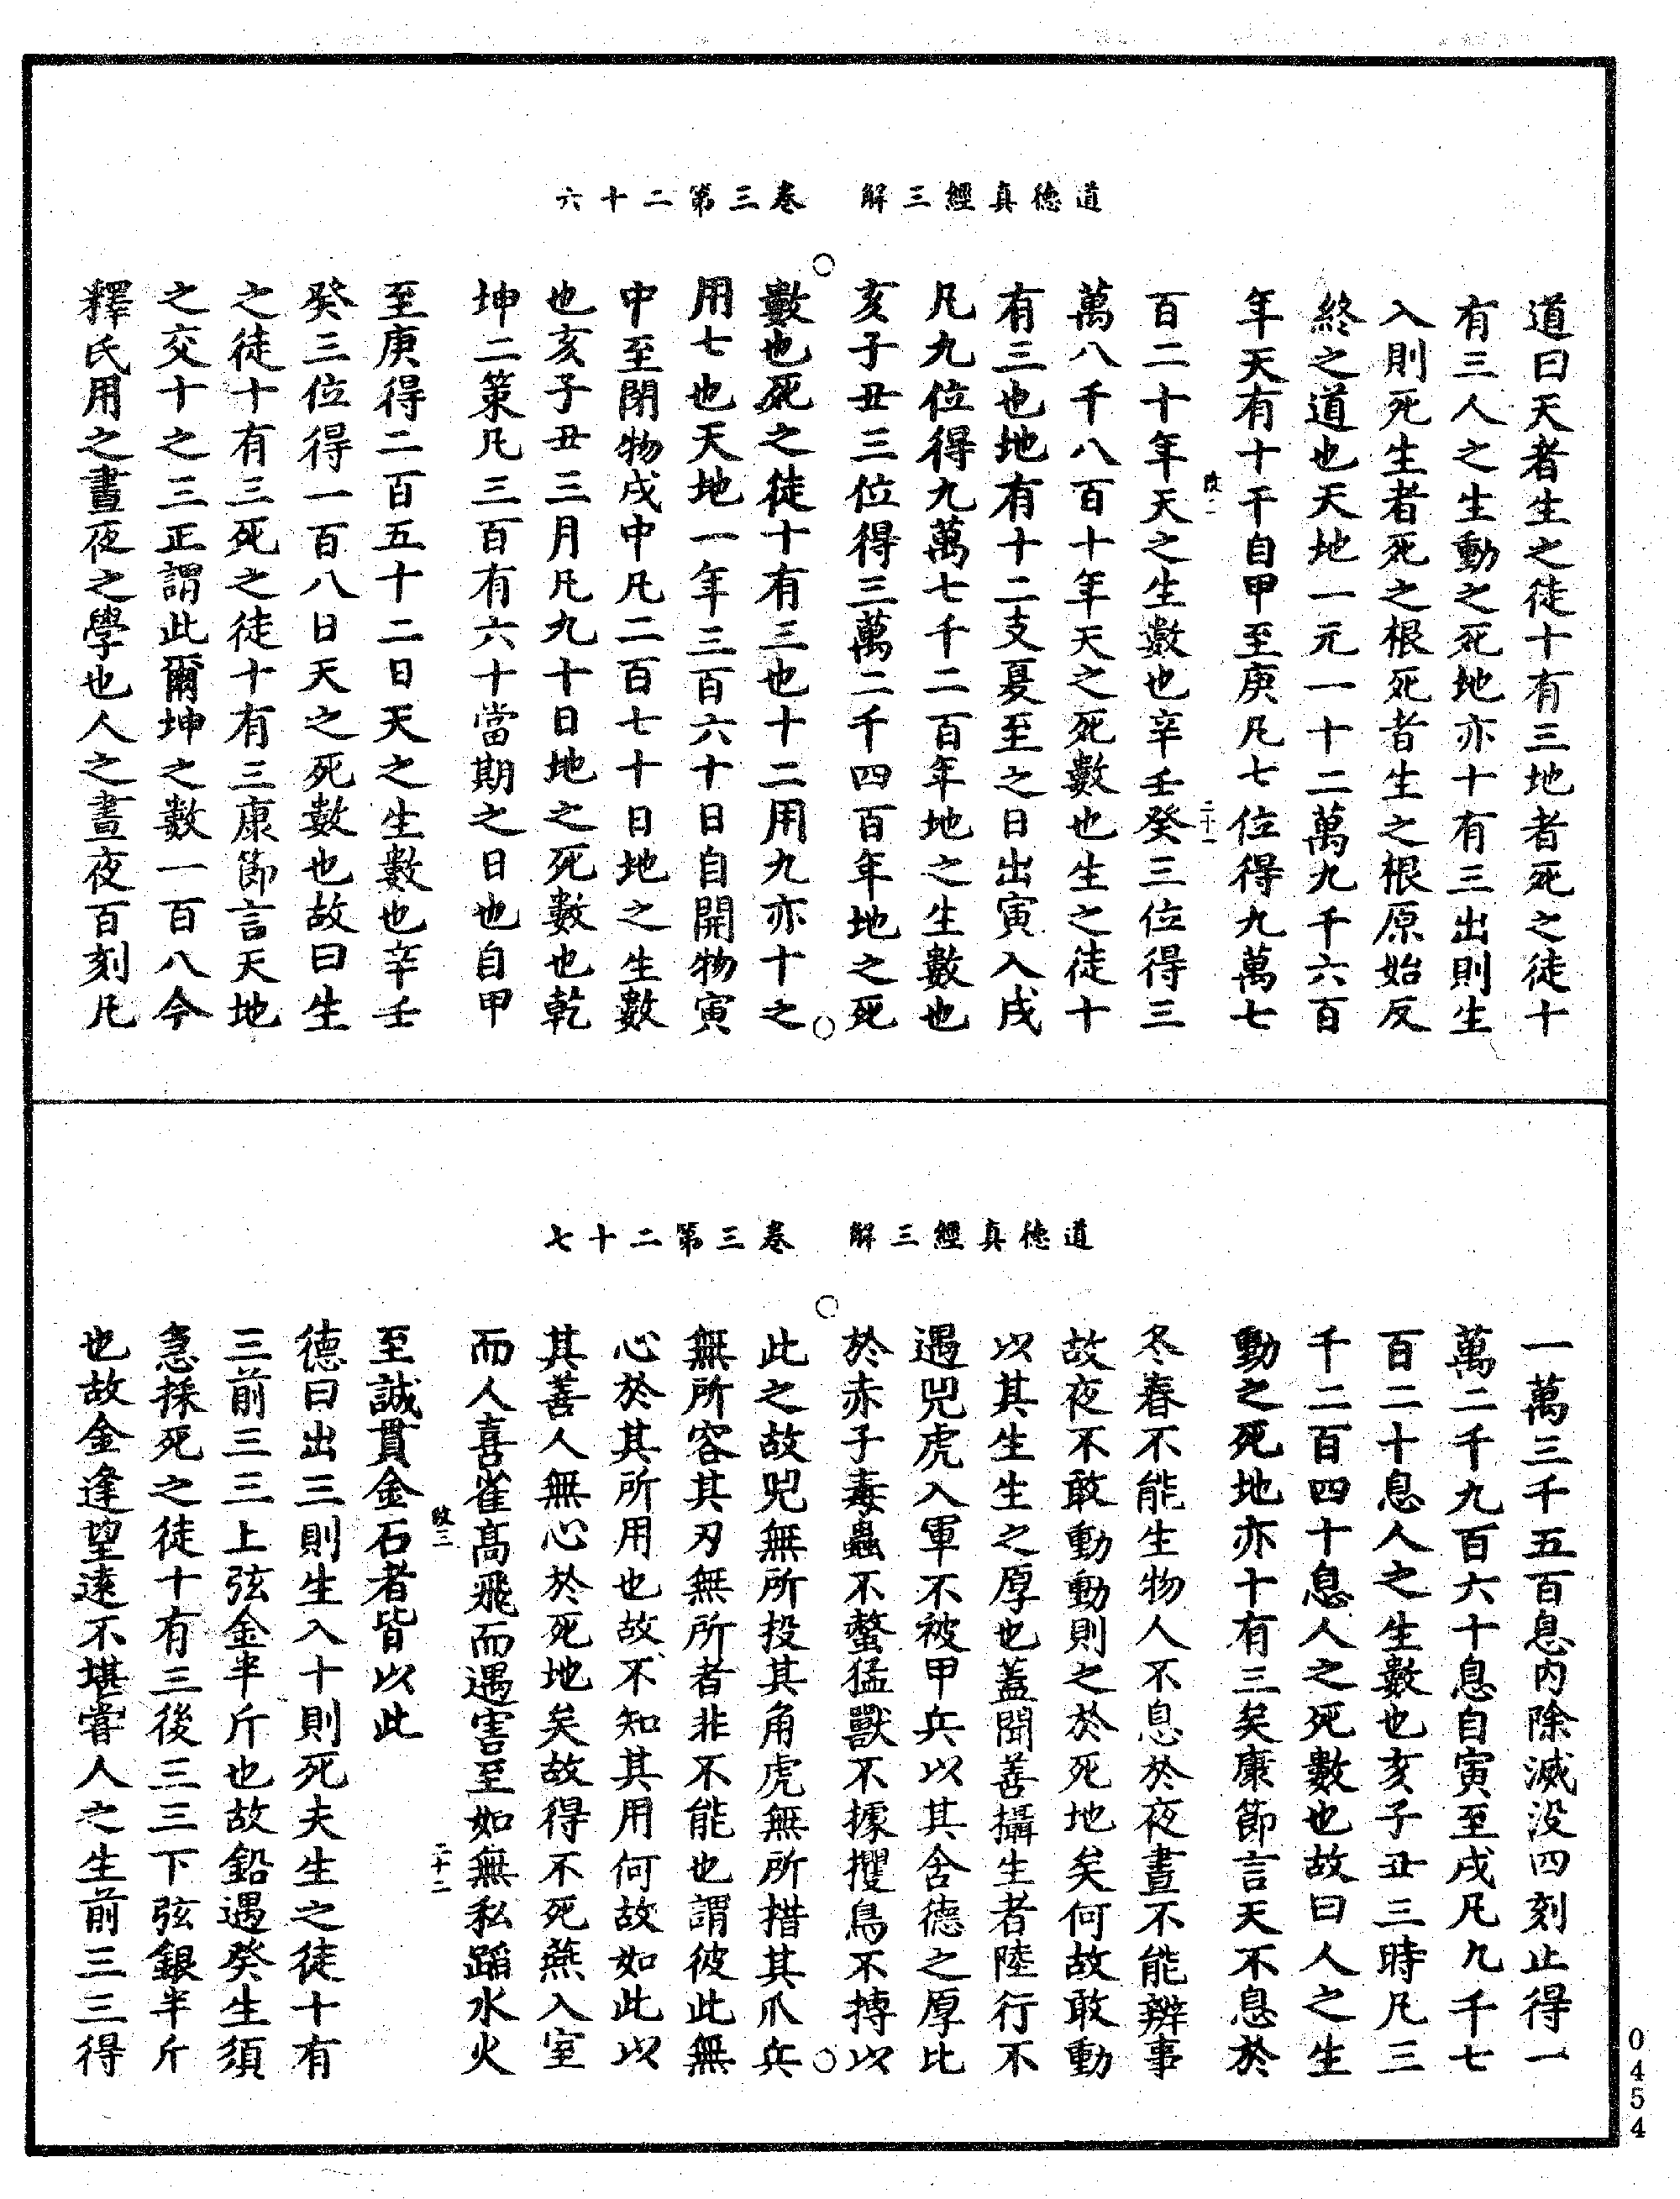 道德真經三解　卷三第二十六
道曰天者生之徒十有三地者死之徒十
有三人之生動之死地亦十有三出則生
入則死生者死之根死者生之根原始反
終之道也天地一元一十二萬九千六百
年天有十干自甲至庚凡七位得九萬七
百二十年天之生數也辛壬癸三位得三
萬八千八百十年天之死數也生之徒十
有三也地有十二支夏至之日出寅入戌
凡九位得九萬七千二百年地之生數也
亥子丑三位得三萬二千四百年地之死
數也死之徒十有三也十二用九亦十之
用七也天地一年三百六十日自開物寅
中至閉物戌中凡二百七十日地之生數
也亥子丑三月凡九十日地之死數也乾
坤二策凡三百有六十當期之日也自甲
至庚得二百五十二日天之生數也辛壬
癸三位得一百八日天之死數也故曰生
之徒十有三死之徒十有三康節言天地
之交十之三正謂此爾坤之數一百八今
釋氏用之晝夜之學也人之晝夜百刻凡
道德真經三解　卷三第二十七
一萬三千五百息內除減没四刻止得一
萬二千九百六十息自寅至戌凡九千七
百二十息人之生數也亥子丑三時凡三
千二百四十息人之死數也故曰人之生
動之死地亦十有三矣康節言天不息於
冬春不能生物人不息於夜晝不能辨事
故夜不敢動動則之於死地矣何故敢動
以其生生之厚也蓋聞善攝生者陸行不
遇兕虎入軍不被甲兵以其含德之厚比
於赤子毒蟲不螫猛獸不據攫鳥不搏以
此之故兕無所投其角虎無所措其爪兵
無所容其刃無所者非不能也謂彼此無
心於其所用也故不知其用何故如此以
其善人無心於死地矣故得不死燕入室
而人喜雀高飛而遇害至如無私蹈水火
至誠貫金石者皆以此
德曰出三則生入十則死夫生之徒十有
三前三三上弦金半斤也故鉛遇癸生須
急採死之徒十有三後三三下弦銀半斤
也故金逢望遠不堪嘗人之生前三三得
改一
二十一
改三
二十二
0454